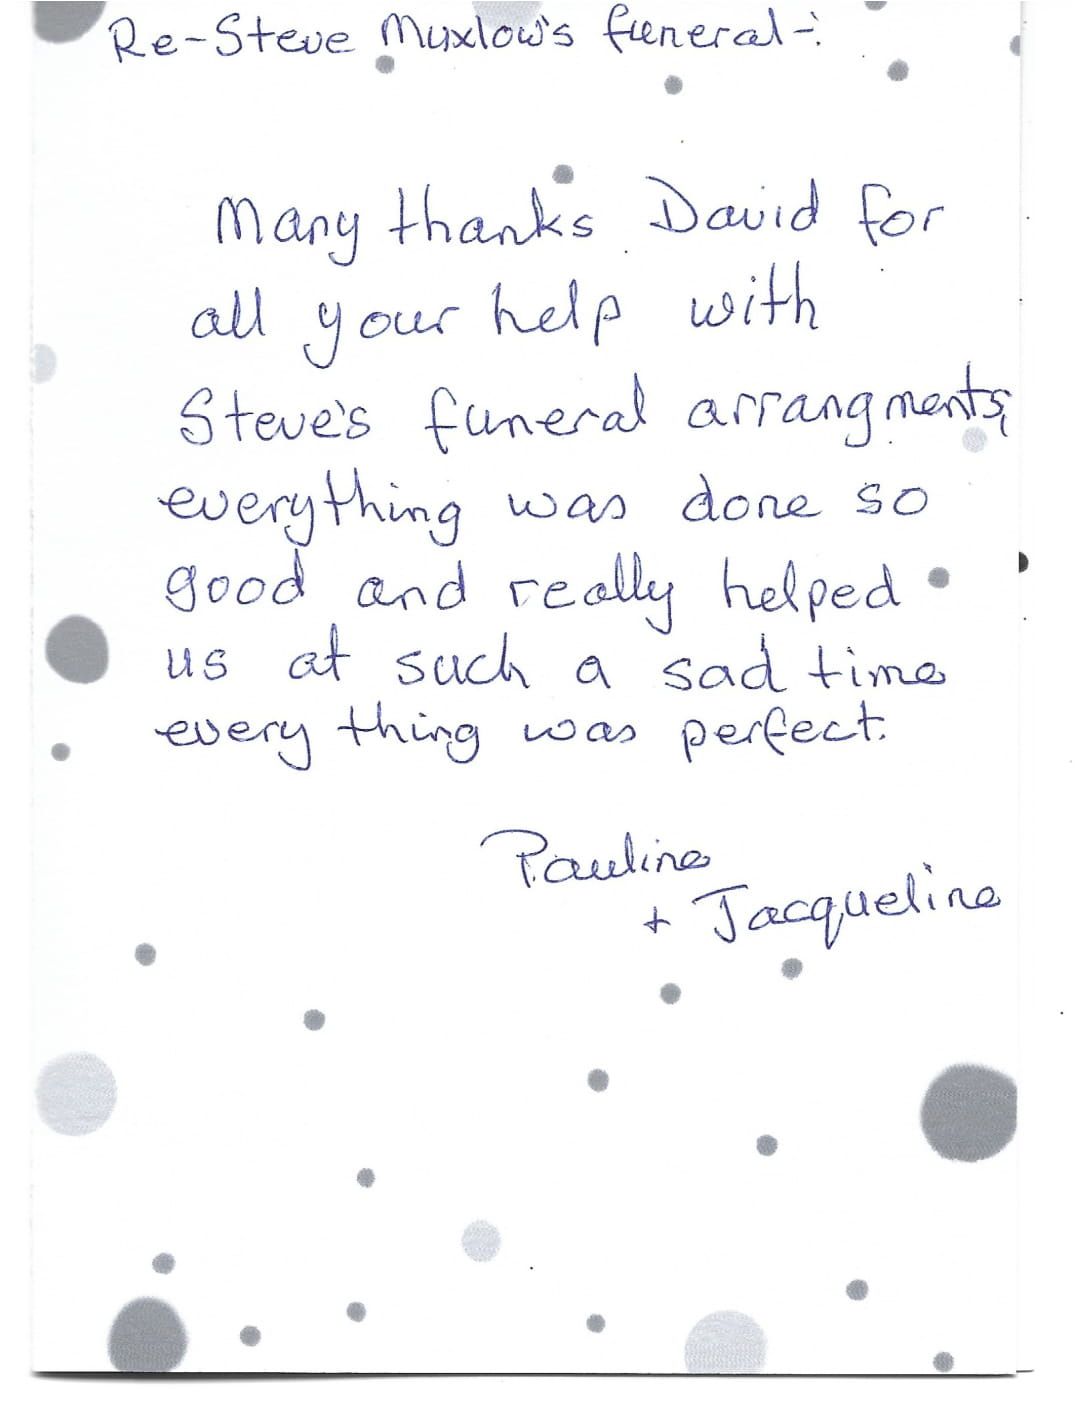 Re-Steve Muxlow's funeral-:
Many thanks David for
all your help with
Steve's funeral arrangments,
everything was done so
good and really helped
us at such a sad time
every thing was perfect.
Pauline
+ Jacqueline